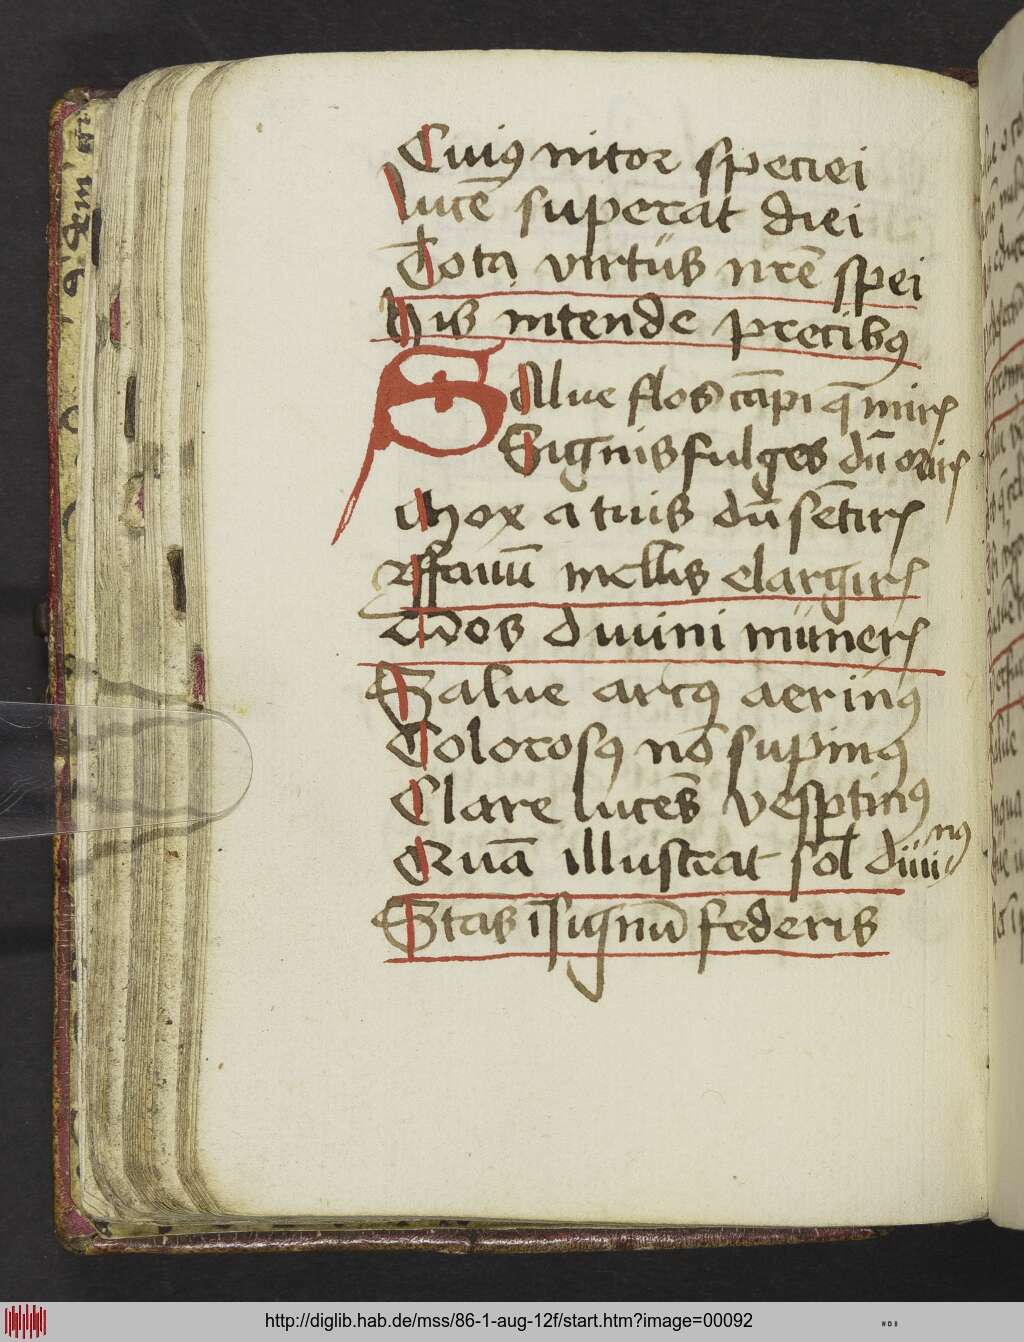 Cuiꝯ nitor speciei
lucē superat diei
Tota virtus nr̄e spei
His intende precibꝯ
Salue flos cāpi q̄ mirꝭ
Signis fulges dū orirꝭ
Mox a tuis dū sētirꝭ
Et fauū mellis elargirꝭ
Dos diuini munerꝭ
Salue arcꝯ aerinꝯ
Colorosꝯ nō supinꝯ
Clare lucēs vesptinꝯ
Quā illustrat sol diuinꝯ
Stas ī signū federis
http://diglib.hab.de/mss/86-1-aug-12f/start.htm?image=00092